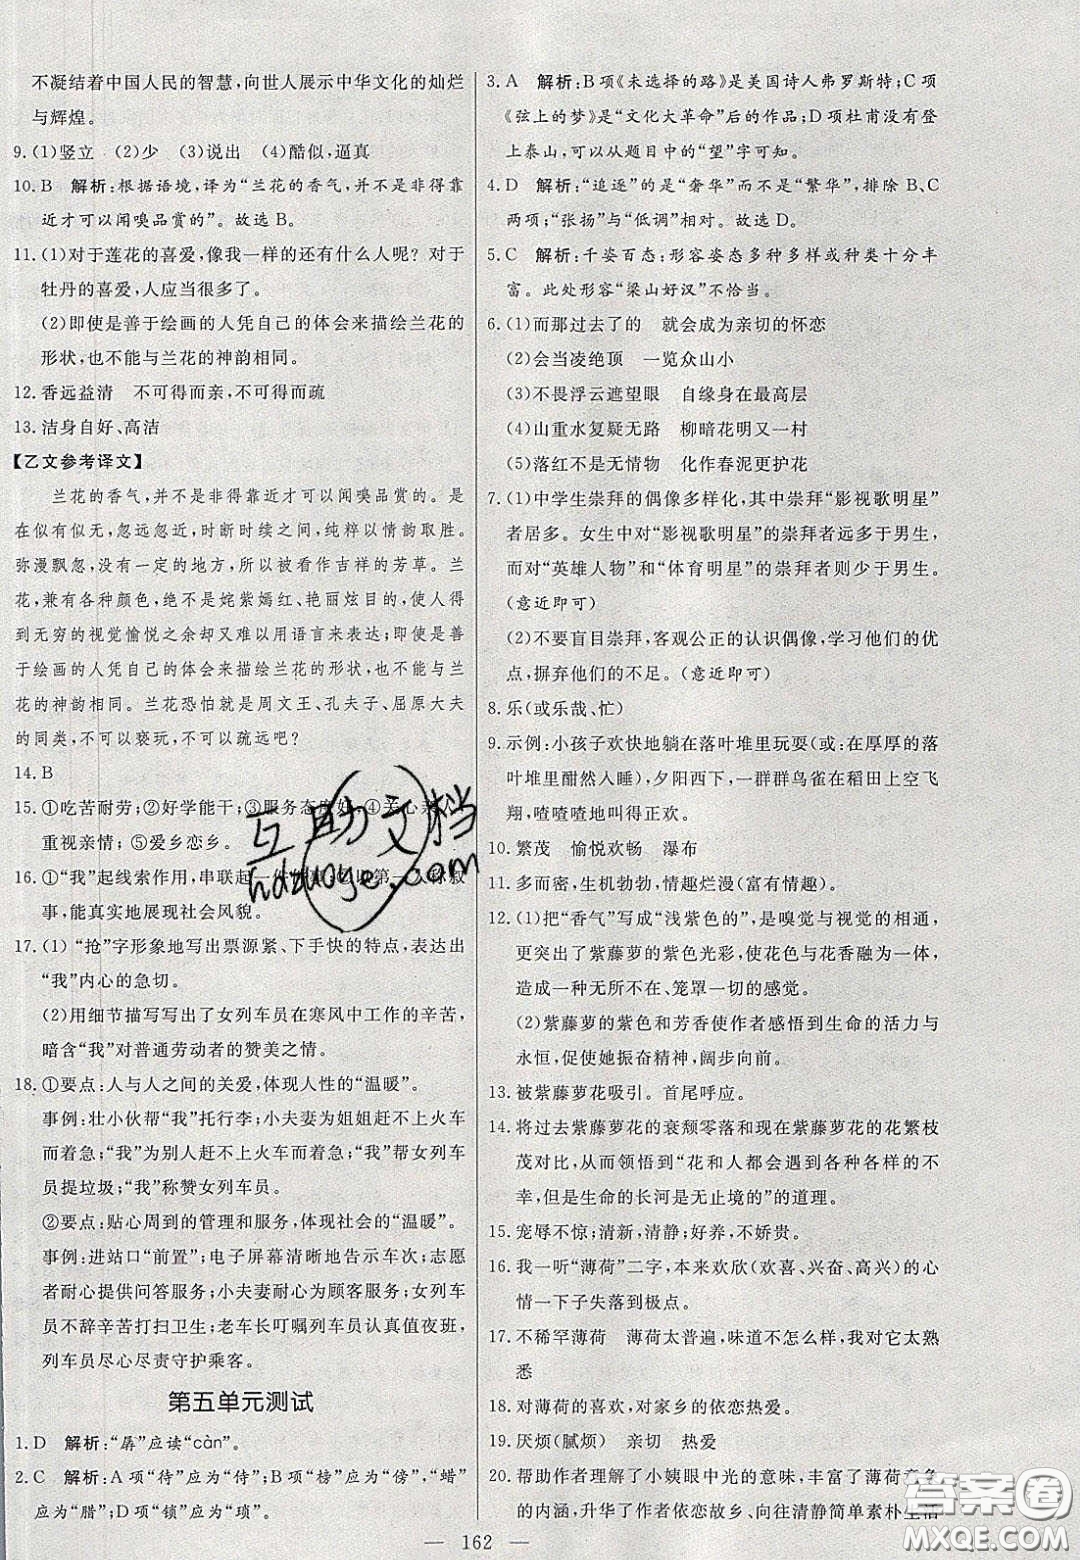 不凝结着中国人民的智慧,向世人展示中华文化的灿烂
与辉煌。
9.(1)竖立 (2)少 (3)说出 (4)酷似,逼真
10.B 解析:根据语境,译为“兰花的香气,并不是非得靠
近才可以闻嗅品赏的”。故选B。
11.(1)对于莲花的喜爱,像我一样的还有什么人呢? 对于
牡丹的喜爱,人应当很多了。
(2)即使是善于绘画的人凭自己的体会来描绘兰花的
形状,也不能与兰花的神韵相同。
12.香远益清 不可得而亲,不可得而疏
13.洁身自好、高洁
【乙文参考译文】
兰花的香气,并不是非得靠近才可以闻嗅品赏的。是
在似有似无,忽远忽近,时断时续之间,纯粹以情韵取胜。
弥漫飘忽,没有一定的地方,所以被看作吉祥的芳草。兰
花,兼有各种颜色,不仅是姹紫嫣红、艳丽炫目的,使人得
到无穷的视觉愉悦之余却又难以用语言来表达;即使是善
于绘画的人凭自己的体会来描绘兰花的形状,也不能与兰
花的神韵相同。兰花恐怕就是周文王、孔夫子、屈原大夫
的同类,不可以亵玩,不可以疏远吧?
14.B
15.①吃苦耐劳;②好学能干;③服务态度好;④关心亲人,
重视亲情;⑤爱乡恋乡。
16.①“我”起线索作用,串联起一件件事;②以第一人称叙
事,能真实地展现社会风貌。
17.(1)“抢”字形象地写出票源紧、下手快的特点,表达出
“我”内心的急切。
(2)用细节描写写出了女列车员在寒风中工作的辛苦,
暗含“我”对普通劳动者的赞美之情。
18.①要点:人与人之间的关爱,体现人性的“温暖”。
事例:壮小伙帮“我”托行李;小夫妻为姐姐赶不上火车
而着急;“我”为小夫妻赶不上火车而着急;“我”帮女列车
员提垃圾;“我”称赞女列车员。
②要点:贴心周到的管理和服务,体现社会的“温暖”。
事例:进站口“前置”;电子屏幕清晰地告示车次;志愿
者耐心提供问答服务;小夫妻耐心为顾客服务;女列车
员不辞辛苦打扫卫生;老车长叮嘱列车员认真值夜班,
列车员尽心尽责守护乘客。
第五单元测试
1.D 解析:“孱”应读“càn”。
2.C 解析:A项“待”应为“侍”;B项“榜”应为“傍”,“蜡”
应为“腊”;D项“锁”应为“琐”。
3.A 解析:B项《未选择的路》是美国诗人弗罗斯特;C项
《弦上的梦》是“文化大革命”后的作品;D项杜甫没有登
上泰山,可以从题目中的“望”字可知。
4.D 解析:“追逐”的是“奢华”而不是“繁华”,排除B、C
两项;“张扬”与“低调”相对。故选D。
5.C 解析:千姿百态:形容姿态多种多样或种类十分丰
富。此处形容“梁山好汉”不恰当。
6.(1)而那过去了的 就会成为亲切的怀恋
(2)会当凌绝顶 一览众山小
(3)不畏浮云遮望眼 自缘身在最高层
(4)山重水复疑无路 柳暗花明又一村
(5)落红不是无情物 化作春泥更护花
7.(1)中学生崇拜的偶像多样化,其中崇拜“影视歌明星”
者居多。女生中对“影视歌明星”的崇拜者远多于男生,
而对“英雄人物”和“体育明星”的崇拜者则少于男生。
(意近即可)
(2)不要盲目崇拜,客观公正的认识偶像,学习他们的优
点,摒弃他们的不足。(意近即可)
8.乐(或乐哉、忙)
9.示例:小孩子欢快地躺在落叶堆里玩耍(或:在厚厚的落
叶堆里酣然入睡),夕阳西下,一群群鸟雀在稻田上空飞
翔,喳喳喳地叫得正欢。
10.繁茂 愉悦欢畅 瀑布
11.多而密,生机勃勃,情趣烂漫(富有情趣)。
12.(1)把“香气”写成“浅紫色的”,是嗅觉与视觉的相通,
更突出了紫藤萝的紫色光彩,使花色与花香融为一体,
造成一种无所不在、笼罩一切的感觉。
(2)紫藤萝的紫色和芳香使作者感悟到生命的活力与
永恒,促使她振奋精神,阔步向前。
13.被紫藤萝花吸引。首尾呼应。
14.将过去紫藤萝花的衰颓零落和现在紫藤萝的花繁枝
茂对比,从而领悟到“花和人都会遇到各种各样的不
幸,但是生命的长河是无止境的”的道理。
15.宠辱不惊;清新,清静;好养,不娇贵。
16.我一听“薄荷”二字,本来欢欣(欢喜、兴奋、高兴)的心
情一下子失落到极点。
17.不稀罕薄荷 薄荷太普遍,味道不怎么样,我对它太熟
悉
18.对薄荷的喜欢,对家乡的依恋热爱。
19.厌烦(腻烦) 亲切 热爱
20.帮助作者理解了小姨眼中光的意味,丰富了薄荷意象
的内涵,升华了作者依恋故乡、向往清静简单素朴生活
— 162 —
互助文档
hdzuoye.com
答案圈
MXQE.COM